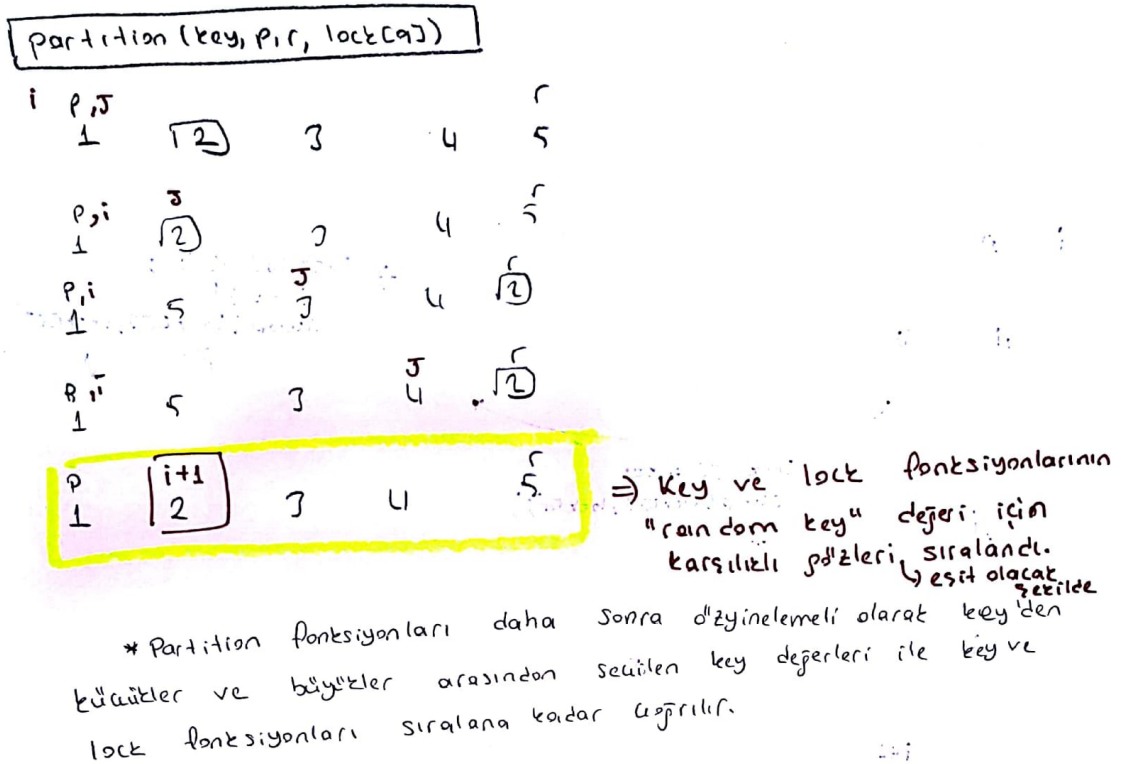 partition (key, p, r, lock[q])
i P,J r
1 2 3 4 5
P,i J r
1 2 3 4 5
P,i J r
1 5 3 4 2
P,i J r
1 5 3 4 2
P i+1 r
1 2 3 4 5
=> Key ve lock fonksiyonlarının
"random key" değeri için
karşılıklı gözleri sıralandı.
↳ eşit olacak
şekilde
* Partition fonksiyonları daha sonra özyinelemeli olarak key'den
küçükler ve büyükler arasından seçilen key değerleri ile key ve
lock fonksiyonları sıralana kadar çağrılır.